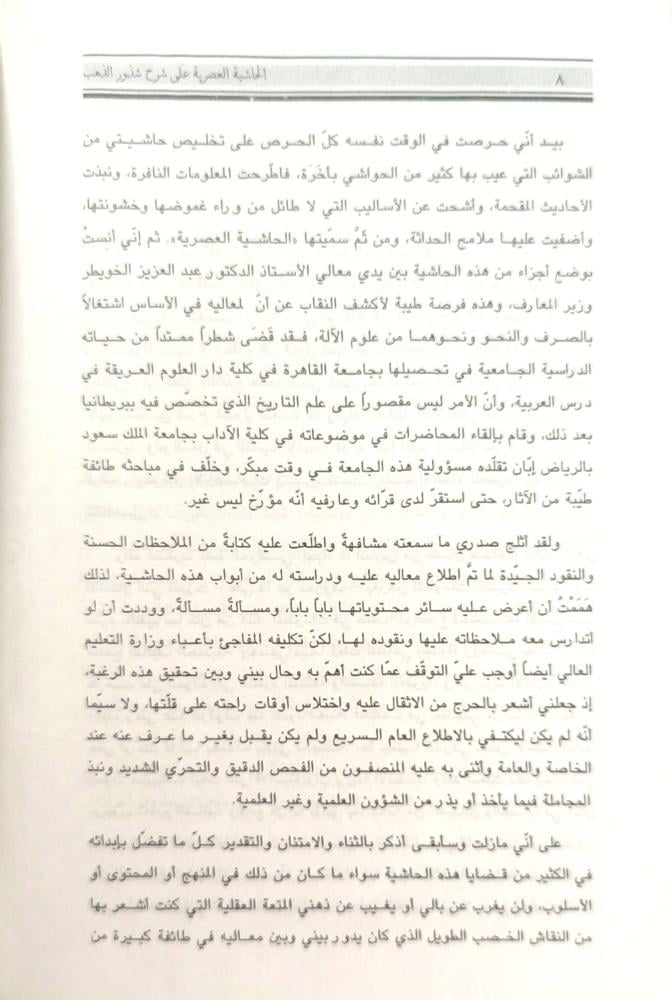 ٨
الحاشية العصرية على شرح شذور الذهب
بيد أنّي حرصت في الوقت نفسه كلّ الحرص على تخليص حاشيتي من
الشوائب التي عيب بها كثير من الحواشي بأَخَرَة، فاطّرحت المعلومات النافرة، ونبذت
الأحاديث المقحمة، وأشحت عن الأساليب التي لا طائل من وراء غموضها وخشونتها،
وأضفيت عليها ملامح الحداثة، ومن ثَمَّ سميّتها «الحاشية العصرية». ثم إنّي أنِستُ
بوضع أجزاء من هذه الحاشية بين يدي معالي الأستاذ الدكتور عبد العزيز الخويطر
وزير المعارف، وهذه فرصة طيبة لأكشف النقاب عن أنّ لمعاليه في الأساس اشتغالاً
بالصرف والنحو ونحوهما من علوم الآلة، فقد قَضَى شطراً ممتداً من حياته
الدراسية الجامعية في تحصيلها بجامعة القاهرة في كلية دار العلوم العريقة في
درس العربية، وأنّ الأمر ليس مقصوراً على علم التاريخ الذي تخصّص فيه ببريطانيا
بعد ذلك، وقام بإلقاء المحاضرات في موضوعاته في كلية الآداب بجامعة الملك سعود
بالرياض إبّان تقلّده مسؤولية هذه الجامعة في وقت مبكّر، وخلّف في مباحثه طائفة
طيّبة من الآثار، حتى استقرّ لدى قرّائه وعارفيه أنّه مؤرّخ ليس غير.
ولقد أثلج صدري ما سمعته مشافهةً واطلّعت عليه كتابةً من الملاحظات الحسنة
والنقود الجيّدة لما تمَّ اطلاع معاليه عليه ودراسته له من أبواب هذه الحاشية، لذلك
هَمَمْتُ أن أعرض عليه سائر محتوياتها باباً باباً، ومسألةً مسألةً، ووددت أن لو
أتدارس معه ملاحظاته عليها ونقوده لها، لكنّ تكليفه المفاجئ بأعباء وزارة التعليم
العالي أيضاً أوجب عليّ التوقّف عمّا كنت أهمّ به وحال بيني وبين تحقيق هذه الرغبة،
إذ جعلني أشعر بالحرج من الاثقال عليه واختلاس أوقات راحته على قلّتها، ولا سيّما
أنّه لم يكن ليكتفي بالاطلاع العام السريع ولم يكن يقبل بغير ما عرف عنه عند
الخاصة والعامة وأثنى به عليه المنصفون من الفحص الدقيق والتحرّي الشديد ونبذ
المجاملة فيما يأخذ أو يذر من الشؤون العلمية وغير العلمية.
على أنّي مازلت وسأبقى أذكر بالثناء والامتنان والتقدير كلّ ما تفضّل بإبدائه
في الكثير من قضايا هذه الحاشية سواء ما كان من ذلك في المنهج أو المحتوى أو
الأسلوب، ولن يغرب عن بالي أو يغيب عن ذهني المتعة العقلية التي كنت أشعر بها
من النقاش الخصب الطويل الذي كان يدور بيني وبين معاليه في طائفة كبيرة من